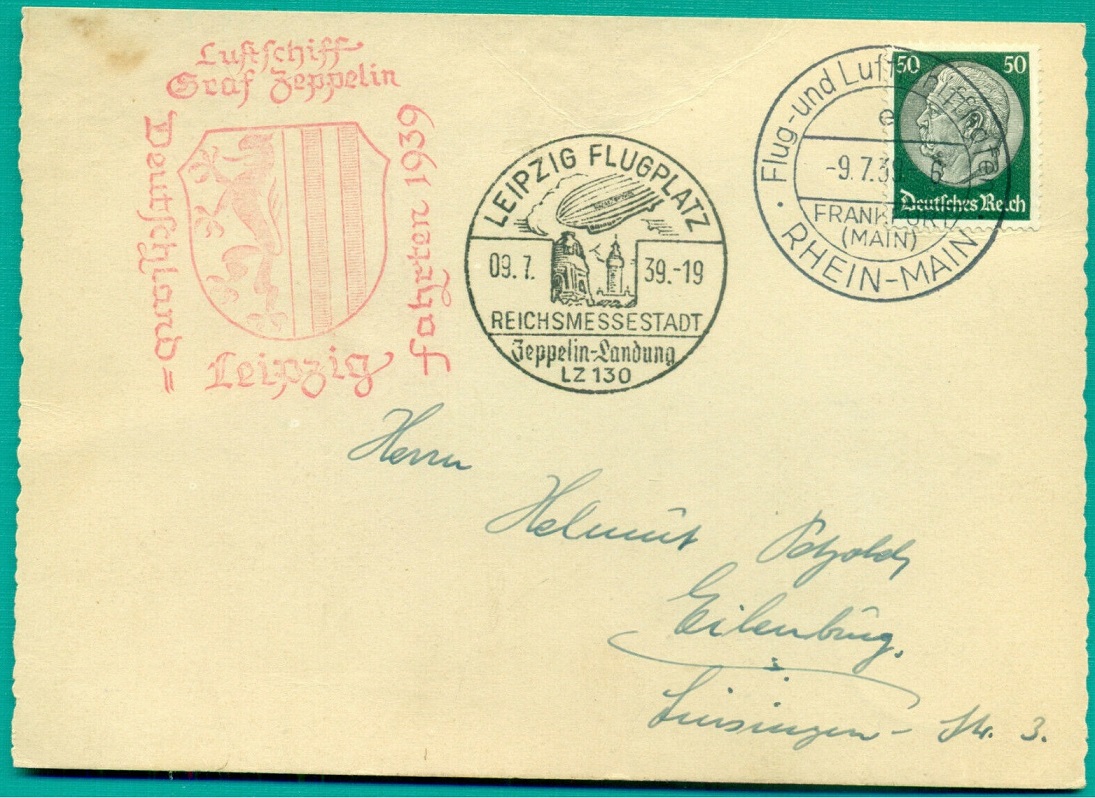 Luftschiff
Graf Zeppelin
Deutschland=
fahrten 1939
Leipzig
LEIPZIG FLUGPLATZ
09.7. 39.-19
REICHSMESSESTADT
Zeppelin-Landung
LZ 130
Flug- und Luftschiffhafen
e
-9.7.39.-6
FRANKFURT
(MAIN)
RHEIN-MAIN
50 50
Deutsches Reich
Herrn
Helmut
Eilenburg.
Linsingen-Str. 3.